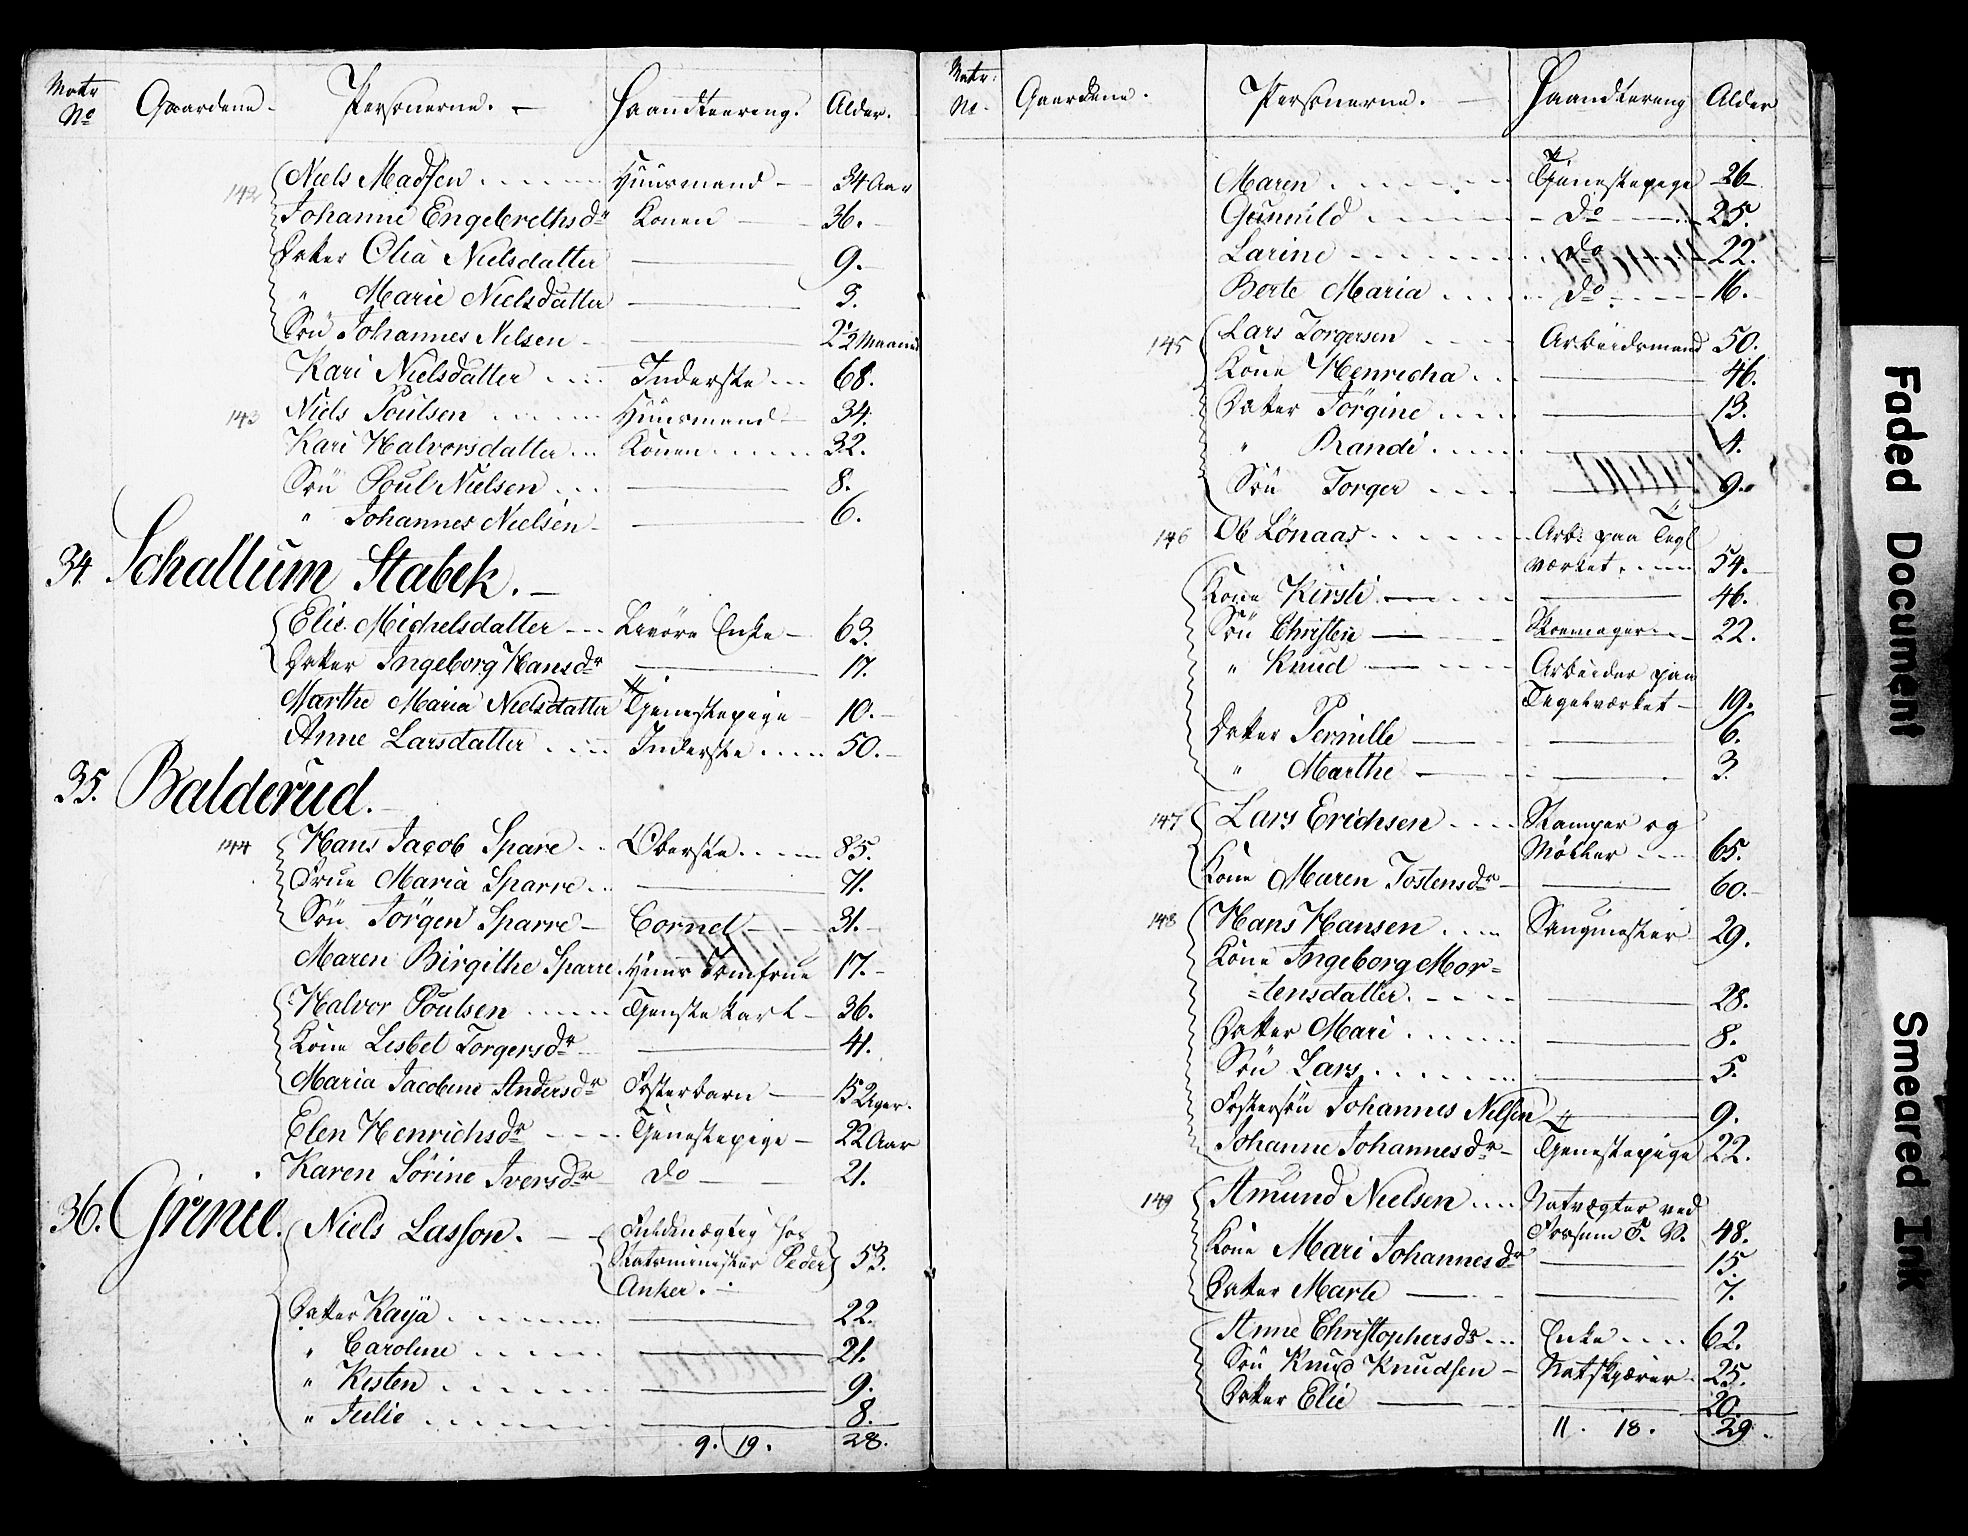 Matr No Gaardene. Personerne. Haandteering. Alder.
142 Niels Madsen Huusmand 34 Aar
Johanne Engebrethsdr Konen 36.
Datter Olia Nielsdatter 9.
" Marie Nielsdatter 3.
Søn Johannes Nilsen 2 1/2 Maaned
Kari Nielsdatter Inderste 68.
143 Niels Poulsen Huusmand 34.
Kari Halvorsdatter Konen 32.
Søn Poul Nielsen 8.
" Johannes Nielsen 6.
34. Schallum Stabek.
Elie Michelsdatter Levøre Enke 63.
Datter Ingeborg Hansdr 17.
Marthe Maria Nielsdatter Tjenestepige 10.
Anne Larsdatter Inderste 50.
35. Balderud.
144 Hans Jacob Sparre Oberste 85.
Frue Maria Sparre 71.
Søn Jørgen Sparre Cornet 31.
Maren Birgithe Sparre Huus Jomfrue 17.
Halvor Poulsen Tjenste Karl 36.
Kone Lisbet Torgersdr 41.
Maria Jacobine Andersdr Fosterbarn 15 Uger.
Elen Henrichsdr Tjenestepige 22 Aar
Karen Sørine Iversdr do 21.
36. Grinie. Niels Lasson. Fuldmægtig hos
Statsminister Peder 53.
Anker.
Datter Kaija 22.
" Caroline 21.
" Kisten 9.
" Julie 8.
9. 19. 28.
Matr: No. Gaardene. Personerne. Haandtering Alder
Maren Tjenestepige 26
Gunnild do 25.
Larine do 22.
Berte Maria do 16.
145 Lars Torgersen Arbeidsmand 50.
Kone Henricha 46.
Datter Jørgine 13.
" Randi 4.
Søn Torger 9.
146 Ole Lønaas Arb: paa Tegl
værket 54.
Kone Kirsti 46.
Søn Christen Skomager 22.
" Knud Arbeider paa
Tegelværket 19.
Datter Pernille 6.
" Marthe 3.
147 Lars Erichsen Stamper og
Møller 65.
Kone Maren Tostensdr 60.
148 Hans Hansen Saugmester 29.
Kone Ingeborg Mor=
=tensdatter 28.
Datter Mari 8.
Søn Lars 5.
Fostersøn Johannes Nilsen 9.
Johanne Johannesdr Tjenestepige 22.
149 Amund Nielsen Natvægter ved
Fossum J. V. 48.
Kone Mari Johannesdr 15.
Datter Marte 7.
Anne Christophersdr Enke 62.
Søn Knud Knudsen 25.
Datter Elie 20.
11. 18. 29.
Faded Document
Smeared Ink